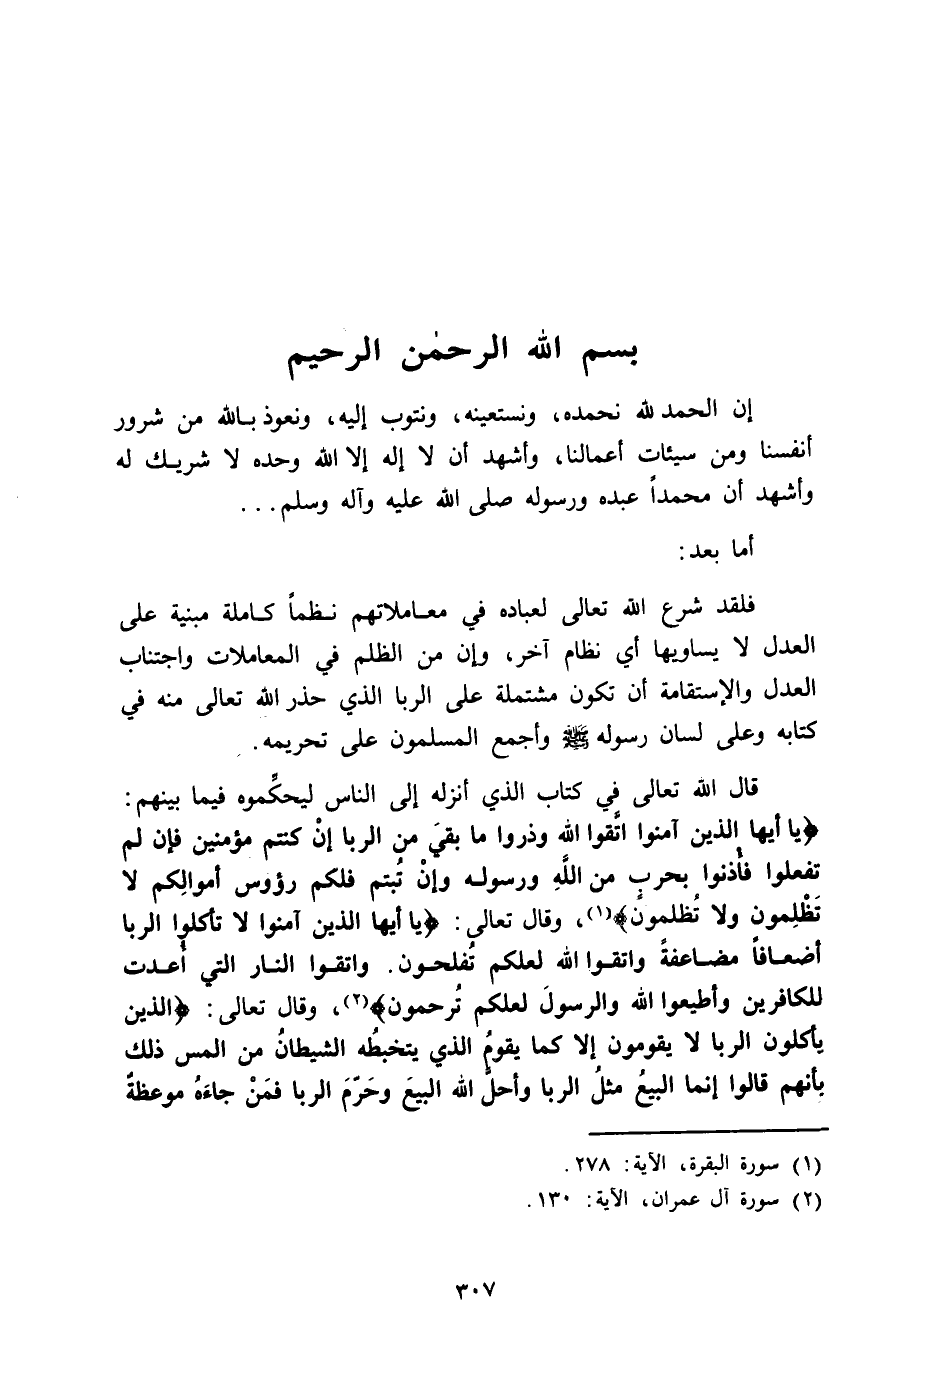 بسم الله الرحمٰن الرحيم
إن الحمد لله نحمده، ونستعينه، ونتوب إليه، ونعوذ بالله من شرور
أنفسنا ومن سيئات أعمالنا، وأشهد أن لا إله إلا الله وحده لا شريك له
وأشهد أن محمداً عبده ورسوله صلى الله عليه وآله وسلم...
أما بعد:
فلقد شرع الله تعالى لعباده في معاملاتهم نظماً كاملة مبنية على
العدل لا يساويها أي نظام آخر، وإن من الظلم في المعاملات واجتناب
العدل والإستقامة أن تكون مشتملة على الربا الذي حذر الله تعالى منه في
كتابه وعلى لسان رسوله ﷺ وأجمع المسلمون على تحريمه.
قال الله تعالى في كتاب الذي أنزله إلى الناس ليحكِّموه فيما بينهم:
﴿يا أيها الذين آمنوا اتَّقوا الله وذروا ما بقيَ من الربا إنْ كنتم مؤمنين فإن لم
تفعلوا فأْذنوا بحربٍ من اللَّهِ ورسوله وإنْ تُبتم فلكم رؤوس أموالِكم لا
تَظْلِمون ولا تُظلمون﴾(١)، وقال تعالى: ﴿يا أيها الذين آمنوا لا تأكلوا الربا
أضعافاً مضاعفةً واتقوا الله لعلكم تُفلحون. واتقوا النار التي أُعدت
للكافرين وأطيعوا الله والرسولَ لعلكم تُرحمون﴾(٢)، وقال تعالى: ﴿الذين
يأكلون الربا لا يقومون إلا كما يقومُ الذي يتخبطُه الشيطانُ من المس ذلك
بأنهم قالوا إنما البيعُ مثلُ الربا وأحلَّ الله البيعَ وحَرّمَ الربا فمَنْ جاءَهُ موعظةٌ
(١) سورة البقرة، الآية: ٢٧٨.
(٢) سورة آل عمران، الآية: ١٣٠.
٣٠٧